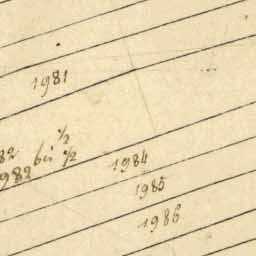 1981
1/2
82 bis 1/2
982
1984
1985
1986